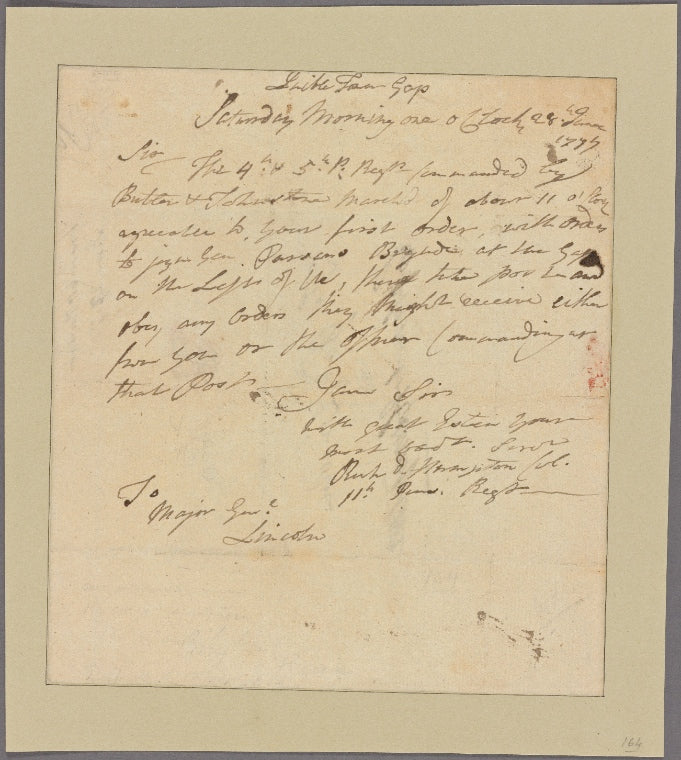 Quible Town Gap
Saturday Morning one o Clock 28th June
1777
Sir
The 4th & 5th P. Regts Commanded by
Butler & Johnstone March'd of about 11 o'Clock
agreeable to your first order, with orders
to joyn Gen. Parsons Brigade at the Gap
on the Left of Us, there take post and
obey any Orders they might receive either
from you or the Officer Commanding at
that Post
I am Sir
with great Esteem your
most obedt. Servt
Richd. Humpton Col.
11th Penn. Regt
To
Major Genl
Lincoln
164